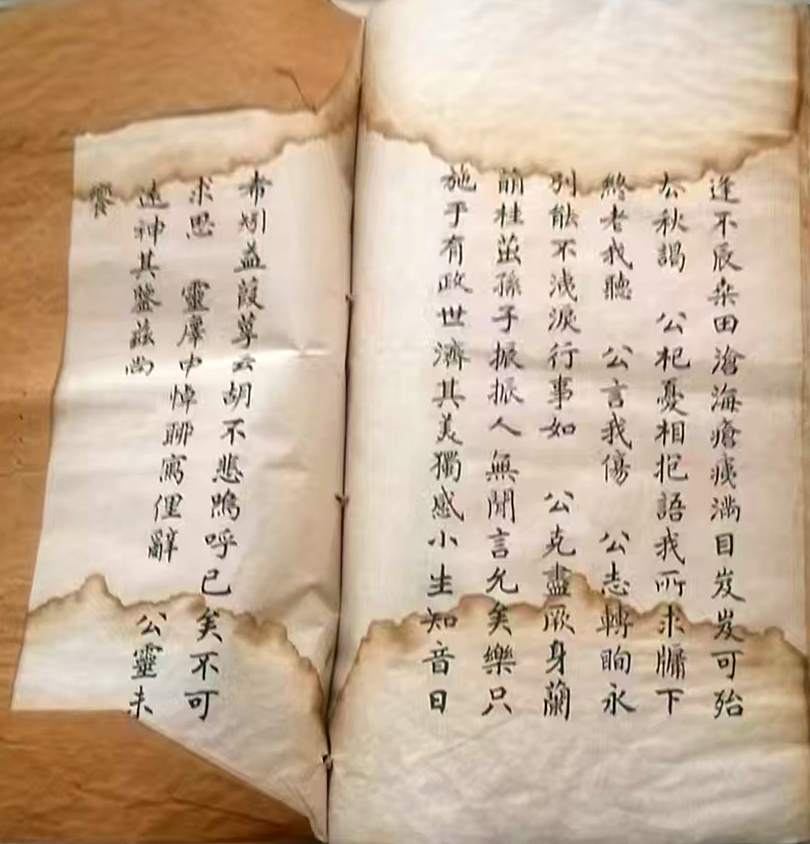 逢不辰桒田滄海瘡痍滿目岌岌可殆
厺秋謁　公杞憂相抱語我所求牖下
終老我聽　公言我傷　公志轉眴永
別能不洩淚行事如　公克盡厥身蘭
萌桂茁孫子振振人無閒言允矣樂只
施于有政世濟其美獨感小生知音日
希矧益葭莩云胡不悲嗚呼已矣不可
求思　靈庠中悼聊寫俚辭　公靈未
遠神其鑒茲尚
饗